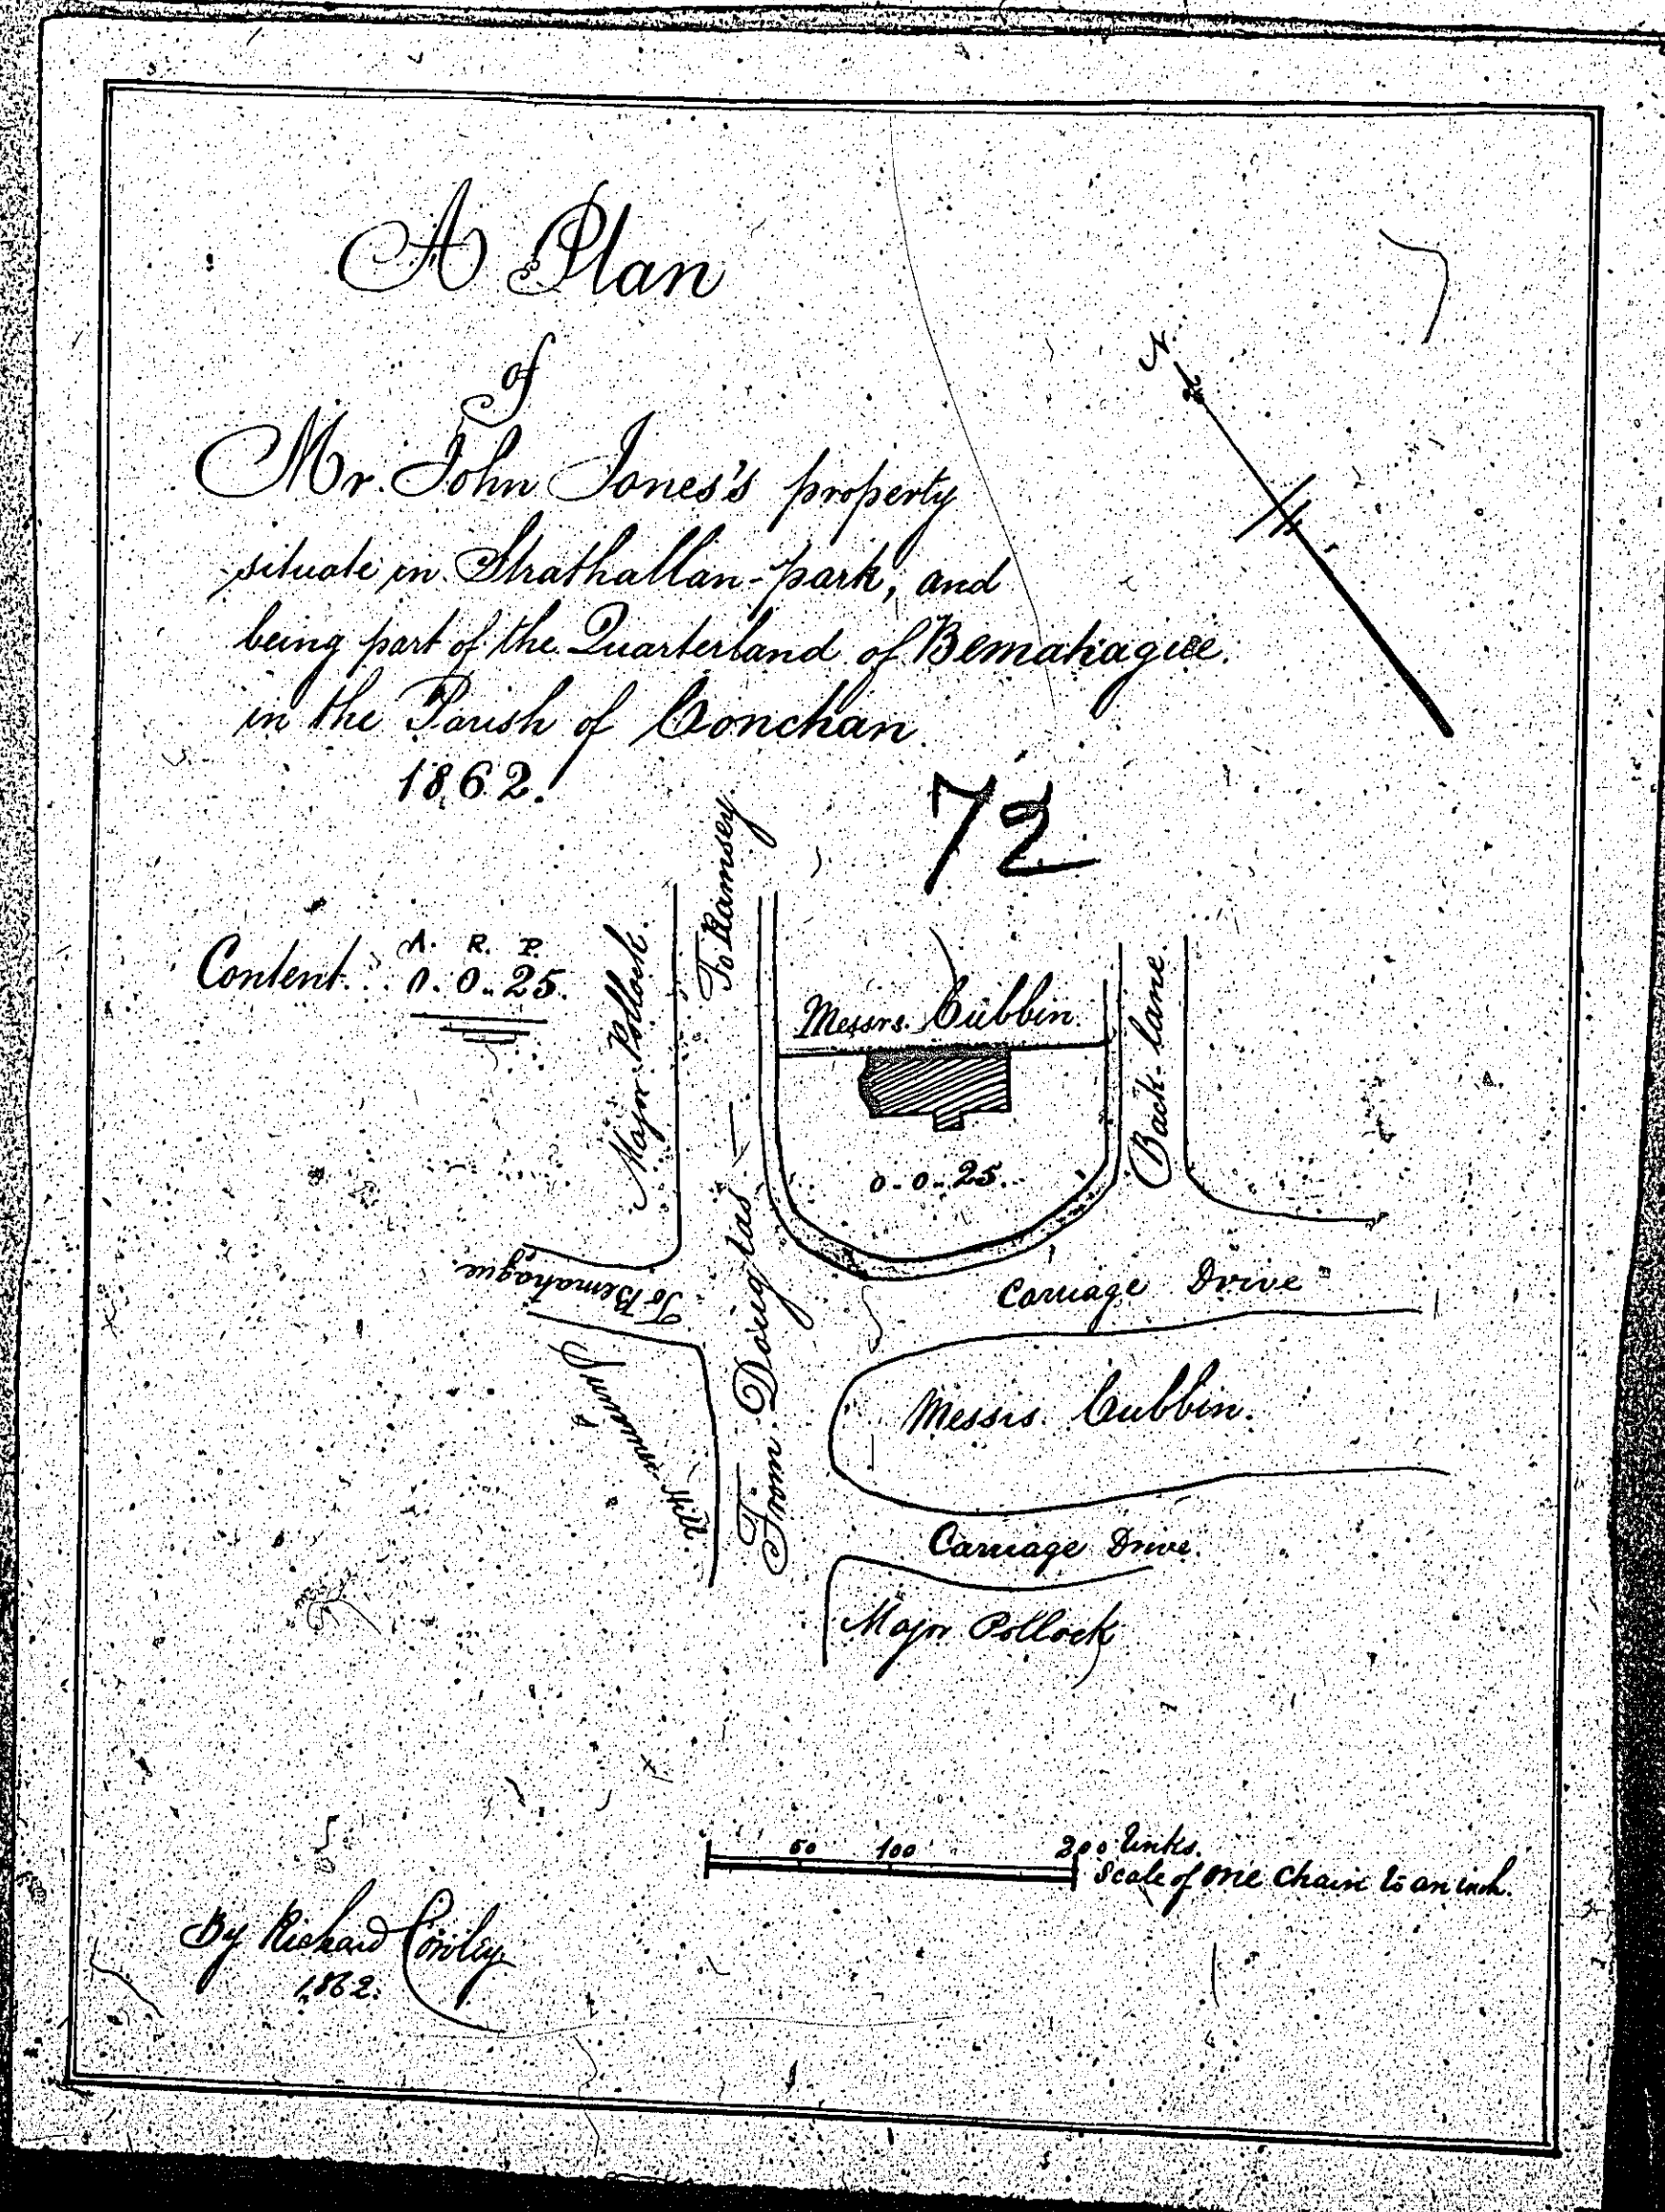 A Plan
of
Mr. John Jones's property
situate in Strathallan-park, and
being part of the Quarterland of Bemahague.
in the Parish of Conchan
1862.
N.
72
Content. A. R. P.
0. 0.. 25.
Major Pollock.
To Ramsey.
Messrs. Cubbin.
Back-lane.
0-0..25.
To Bemahague.
From Douglas
Summer Hill
Carriage Drive
Messrs. Cubbin.
Carriage Drive.
Major Pollock
50 100 200 Links.
Scale of One Chain to an inch.
By Richard Cowley
1862.